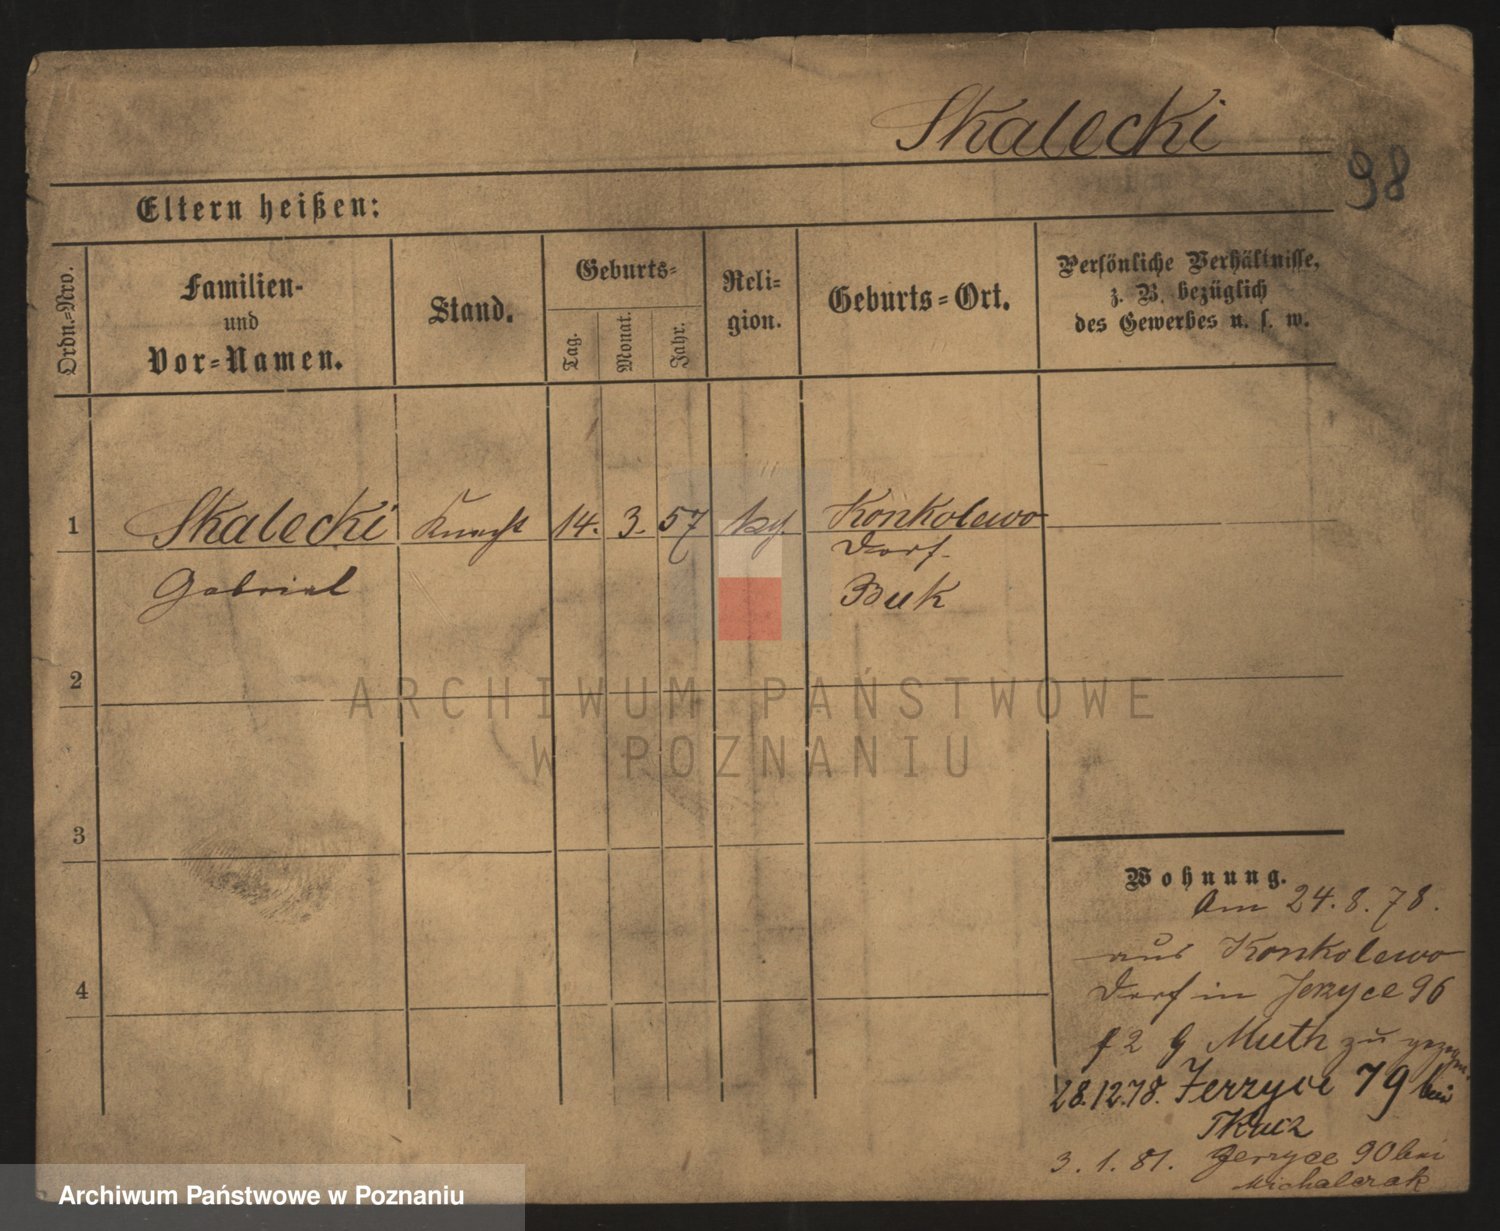 Skalecki
98
Eltern heißen:
Ordn.-Nro.
Familien-
und
Vor-Namen.
Stand.
Geburts-
Tag.
Monat.
Jahr.
Reli-
gion.
Geburts-Ort.
Persönliche Verhältnisse,
z. B. bezüglich
des Gewerbes u. s. w.
1
Skalecki
Gabriel
Knecht
14.
3.
57
Konkolewo
Dorf
Buk
2
3
4
Wohnung.
Am 24.8.78.
aus Konkolewo
Dorf in Jerzyce 96
f 2 G Muth zu
28.12.78. Jerzyce 79 bei
Tkacz
3.1.81. Jerzyce 90 bei
Michalczak
ARCHIWUM PAŃSTWOWE
W POZNANIU
Archiwum Państwowe w Poznaniu